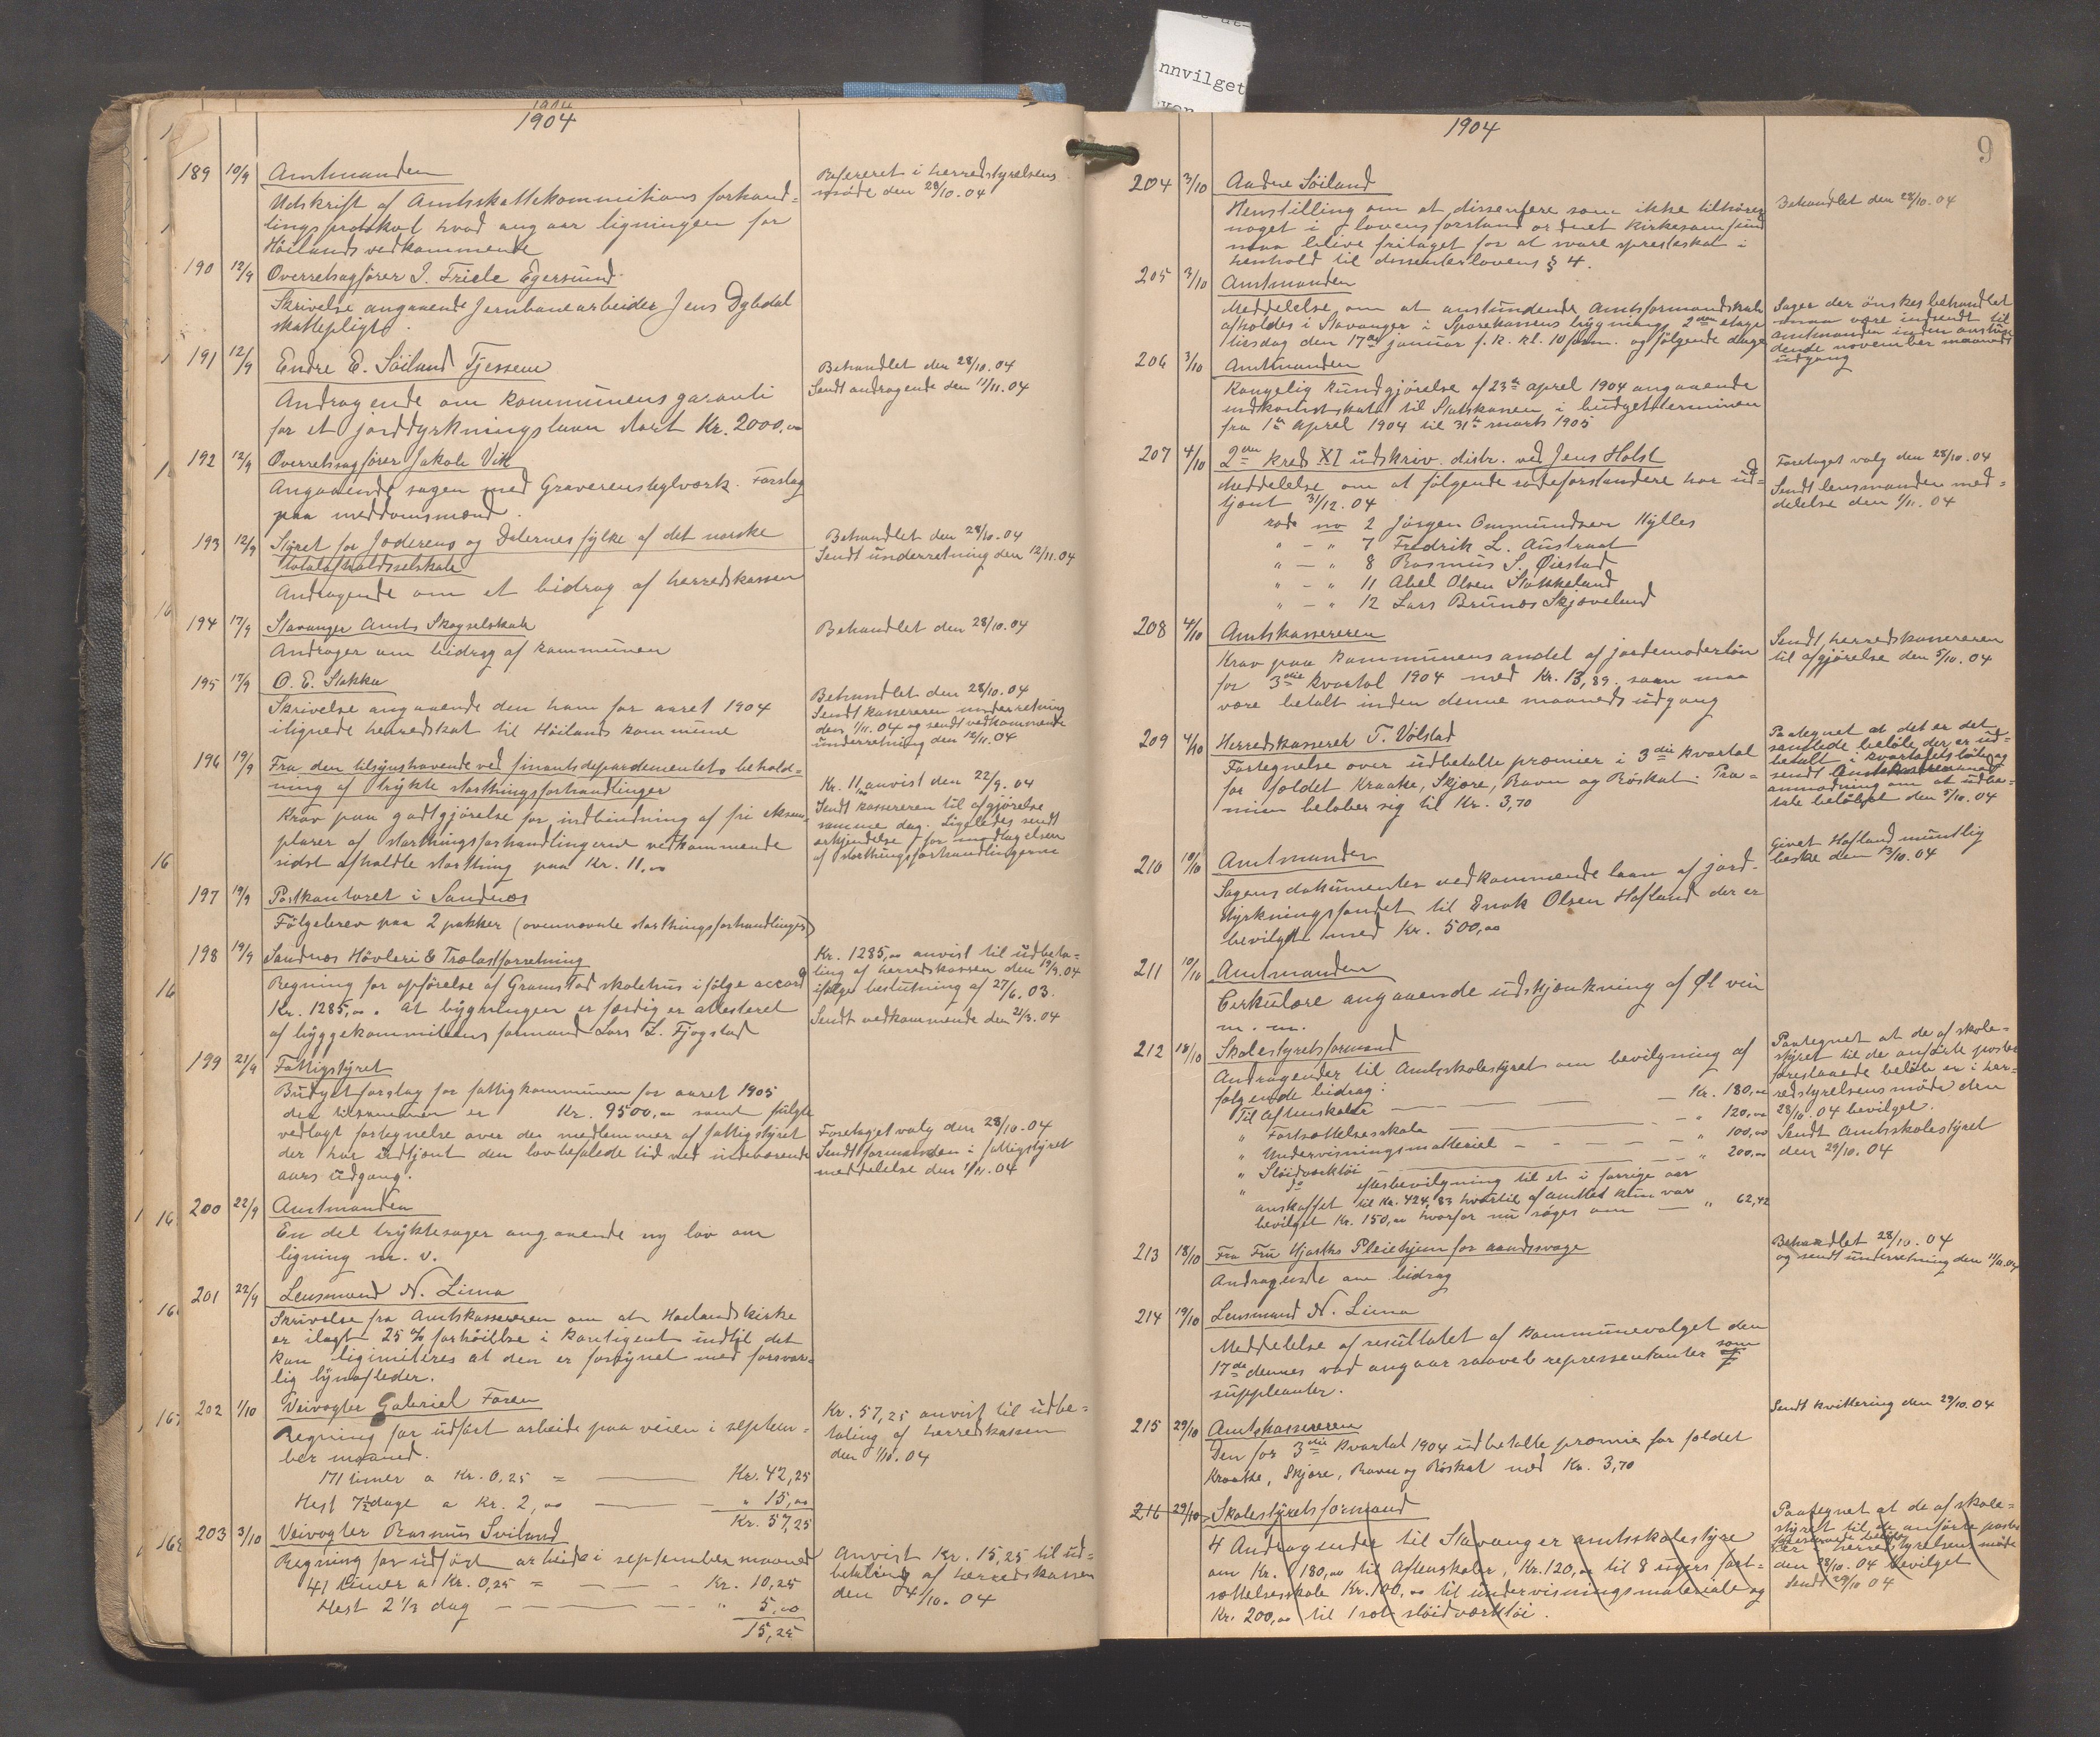 nnvilget
1904
189 10/9 Amtmanden
Udskrift af Amtsskattekommitions forhand=
lingsprotokol hvad angaar ligningen for
Höilands vedkommende
Refereret i herredstyrelsens
møde den 28/10.04
190 12/9 Overretssagfører J. Friele Egersund.
Skrivelse angaaende Jernbanearbeider Jens Dybdal
skattepligt.
191 12/9 Endre E. Söiland Tjessem
Andragende om kommunens garanti
for et jorddyrkningslaan stort Kr. 2000,00
Behandlet den 28/10.04
Sendt andragende den 11/11.04
192 12/9 Overretssagfører Jakob Vik
Angaaende sagen med Graverens teglværk. Forslag
paa meddomsmænd.
193 12/9 Styret for Jæderens og Dalernes fylke af det norske
totalafholdsselskab
Andragende om et bidrag af herredskassen
Behandlet den 28/10.04
Sendt underretning den 12/11.04
194 17/9 Stavanger Amts Skogselskab
Andrager om bidrag af kommunen
Behandlet den 28/10.04
195 17/9 O. E. Stokka
Skrivelse angaaende den ham for aaret 1904
ilignede herredskat til Höilands kommune
Behandlet den 28/10.04
Sendt kassereren underretning
den 1/11.04 og sendt vedkommende
underretning den 12/11.04
196 19/9 Fra den tilsynshavende ved finantsdepardementets behold=
ning af trykte storthingsforhandlinger
Krav paa godtgjørelse for indbindning af fri eksem=
plarer af storthingsforhandlingerne vedkommende
sidst afholdte storthing paa Kr. 11,00
Kr. 11,00 anvist den 22/9.04
Sendt kassereren til afgjørelse
samme dag. Ligeledes sendt
erkjendelse for modtagelsen
af storthingsforhandlingerne
197 19/9 Postkontoret i Sandnæs
Fölgebrev paa 2 pakker (ovennævnte storthingsforhandlinger)
198 19/9 Sandnæs Hövleri & Trælastforretning
Regning for opförelse af Gramstad skolehus ifölge accord
Kr. 1285,00. At bygningen er færdig er attesteret
af byggekommiteens formand Lars L. Fjogstad
Kr. 1285,00 anvist til udbeta=
ling af herredskassen den 19/9.04
ifølge beslutning af 27/6.03.
Sendt vedkommende den 21/9.04
199 21/9 Fattigstyret
Budgetforslag for fattigkommunen for aaret 1905
der tilsammen er Kr. 9500,00 samt fulgte
vedlagt fortegnelse over de medlemmer af fattigstyret
der har udtjent den lovbefalede tid ved indeværende
aars udgang.
Foretaget valg den 28/10.04
Sendt formanden i fattigstyret
meddelelse den 1/11.04
200 22/9 Amtmanden
En del tryktesager angaaende ny lov om
ligning m. v.
201 22/9 Lensmand N. Lima
Skrivelse fra Amtskassereren om at Höilands kirke
er ilagt 25 % forhöielse i kontigent indtil det
kan ligimiteres at den er forsynet med forsvar=
lig lynafleder.
202 1/10 Veivogter Gabriel Foren
Regning for udfört arbeide paa veien i septem=
ber maaned.
171 timer a Kr. 0,25 = Kr. 42,25
Hest 7½ dage a Kr. 2,00 " 15,00
Kr. 57,25
Kr. 57,25 anvist til udbe=
taling af herredskassen
den 1/10.04
203 3/10 Veivogter Rasmus Sviland
Regning for udfört arbeide i september maaned
41 timer a Kr. 0,25 = Kr. 10,25
Hest 2 1/3 dag " 5,00
15,25
Anvist Kr. 15,25 til ud=
betaling af herredskassen
den 4/10.04
1904
9
204 3/10 Aadne Söiland
Henstilling om at dissentere som ikke tilhører
noget i lovens forstand ordnet kirkesamfund
maa blive fritaget for at svare presteskat i
henhold til dissenterlovens § 4.
Behandlet den 28/10.04
205 3/10 Amtmanden
Meddelelse om at anstundende Amtsformandskab
afholdes i Stavanger i Sparekassens bygnings 2den etage
tirsdag den 17de januar f. k. kl. 10 form. og følgende dage
Sager der ønskes behandlet
maa være indsendt til
amtmanden inden anstun=
dende november maaneds
udgang
206 3/10 Amtmanden
Kongelig kundgjörelse af 23de april 1904 angaaende
indkomstskat til Statskassen i budgetterminen
fra 1te april 1904 til 31te marts 1905
207 4/10 2den kreds XI udskriv. distr. ved Jens Holst
Meddelelse om at følgende rodeforstandere har ud=
tjent 31/12.04
rode no 2 Jörgen Ommundsen Hylles
" — " 7 Fredrik L. Austraat
" — " 8 Rasmus S. Øiestad
" — " 11 Abel Olsen Stokkeland
" — " 12 Lars Brunæs Skjæveland
Foretaget valg den 28/10.04
Sendt lensmanden med=
delelse den 1/11.04
208 4/10 Amtskassereren
Krav paa kommunens andel af jordemoderlön
for 3die kvartal 1904 med Kr. 13,89. som maa
være betalt inden denne maaneds udgang
Sendt herredskassereren
til afgjørelse den 5/10.04
209 4/10 Herredskasserer T. Völstad
Fortegnelse over udbetalte præmier i 3die kvartal
for fældet Kraake, Skjære, Ravn og Röskat. Præ=
mien belöber sig til Kr. 3,70
Paategnet at det er det
samlede belöb, der er ud=
betalt i kvartalets löb og
sendt Amtskassereren med
anmodning om at udbe=
tale belöbet den 5/10.04
210 10/10 Amtmanden
Sagens dokumenter vedkommende laan af jord=
dyrkningsfondet til Enok Olsen Hofland der er
bevilget med Kr. 500,00
Givet Hofland muntlig
beske den 13/10.04
211 10/10 Amtmanden
Cirkulære angaaende udskjænkning af Øl vin
m. m.
212 18/10 Skolestyrets formand
Andragender til Amtsskolestyret om bevilgning af
følgende bidrag:
Til Aftenskoler — Kr. 180,00
" Fortsættelsesskole — " 120,00
" Undervisningsmatteriel — " 100,00
" Slöidværktöi — " 200,00
" do efterbevilgning til et i forrige aar
anskaffet til Kr. 424,83 hvortil af amtet kun var
bevilget Kr. 150,00 hvorfor nu söges om — " 62,42
Paategnet at de af skole=
styret til de anförte poster
forestaaede belöb er i her=
redstyrelsens möde den
28/10.04 bevilget.
Sendt Amtsskolestyret
den 29/10.04
213 18/10 Fra Fru Hjorths Pleiehjem for aandssvage
Andragende om bidrag
Behandlet 28/10.04
og sendt underretning den 11/11.04
214 19/10 Lensmand N. Lima
Meddelelse af resultatet af kommunevalget den
17de dennes vad angaar saavel repressentanter som
suppleanter.
215 29/10 Amtskassereren
Den for 3die kvartal 1904 udbetalte præmie for fældet
Kraake, Skjære, Ravn og Röskat med Kr. 3,70
Sendt kvittering den 29/10.04
216 29/10 Skolestyrets formand
4 Andragender til Stavanger amtsskolestyre
om Kr. 180,00 til Aftenskoler, Kr. 120,00 til 8 ugers fort=
sættelsesskole Kr. 100,00 til undervisningsmateriale og
Kr. 200,00 til 1 sæt slöidværktöi.
Paategnet at de af skole=
styret til de anförte poster
forestaaende belöb
er i herredstyrelsens möde
den 28/10.04 bevilget
Sendt 29/10 04